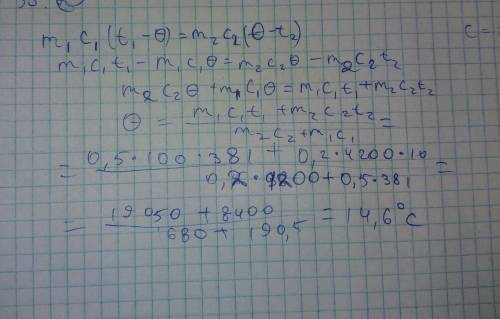 m₁c₁(t₁-θ)=m₂c₂(θ-t₂)
c=
m₁c₁t₁-m₁c₁θ=m₂c₂θ-m₂c₂t₂
m₂c₂θ+m₁c₁θ=m₁c₁t₁+m₂c₂t₂
θ = (m₁c₁t₁+m₂c₂t₂)/(m₂c₂+m₁c₁) =
= (0,5·100·381 + 0,2·4200·10)/(0,2·4200+0,5·381) =
= (19050+8400)/(680+190,5) = 14,6°C